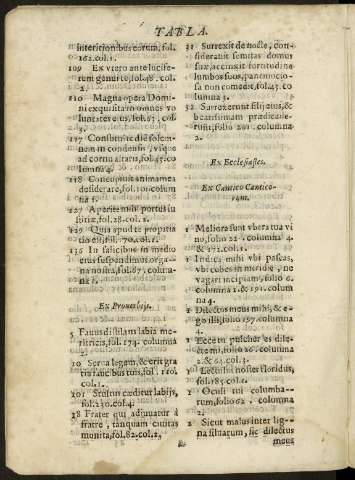 TABLA.
interitionibus eorum, fol.
162. col. 1.
109 Ex vtero ante lucife-
rum genui te, fol. 48. col.
2.
110 Magna opera Domi-
ni exquisita in omnes vo
luntates eius, fol. 67. col.
3.
117 Constituite diē solem-
nem in condensis, vsque
ad cornu altaris, fol. 45. co
lumna 4.
118 Concupiuit anima mea
desiderare, fol. 101. colum
na 1.
117 Aperite mihi portas iu
stitiæ, fol. 28. col. 2.
129 Quia apud te propitia
tio est, fol. 70. col. 1.
136 In salicibus in medio
eius suspendimus orga-
na nostra, fol. 87. colum
na 1.
Ex Prouerbijs.
5 Fauus distilans labia me-
ritricis, fol. 174. columna
2.
10 Serua legem, & erit gra
tia faucibus tuis, fol. 110.
col. 1.
101 Stultus cæditur labijs,
fol. 230. col. 4.
18 Frater qui adiuuatur à
fratre, tanquam ciuitas
munita, fol. 82. col. 2.
31 Surrexit de nocte, con-
siderauit semitas domus
suæ, accinxit fortitudine
lumbos suos, panem ocio-
sa non comedit, fol. 43. co
lumna 3.
32 Surrexerunt filij eius, &
beatissimam prædicaue-
runt, folio 201. columna
2.
Ex Ecclesiastes.
Ex Cantico Cantico-
rum.
1 Meliora sunt vbera tua vi
no, folio 22. columna 4.
& 172. col. 1.
1 Indica mihi vbi pascas,
vbi cubes in meridie, ne
vagari incipiam, folio 6.
columna 1. & 191. colum
na 4.
2 Dilectus meus mihi, & e-
go illi, folio 157. columna
4.
1 Ecce tu pulcher es dile-
cte mi, folio 20. columna
2. & 64. col. 3.
1 Lectulus noster floridus,
fol. 185. col. 2.
1 Oculi tui columba-
rum, folio 62. columna
2.
2 Sicut malus inter lig-
na siluarum, sic dilectus
meus